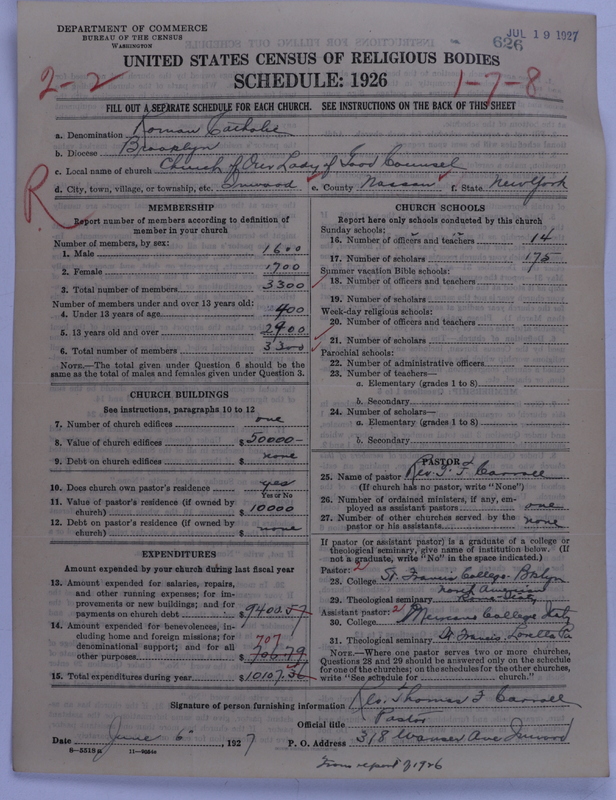 DEPARTMENT OF COMMERCE
BUREAU OF THE CENSUS
WASHINGTON
JUL 19 1927
626
UNITED STATES CENSUS OF RELIGIOUS BODIES
SCHEDULE: 1926
2-2
1-7-8
FILL OUT A SEPARATE SCHEDULE FOR EACH CHURCH. SEE INSTRUCTIONS ON THE BACK OF THIS SHEET
a. Denomination Roman Catholic
b. Diocese Brooklyn
c. Local name of church Church of Our Lady of Good Counsel
d. City, town, village, or township, etc. Inwood e. County Nassau f. State New York
R
MEMBERSHIP
Report number of members according to definition of member in your church
Number of members, by sex:
1. Male 1600
2. Female 1700
3. Total number of members 3300
Number of members under and over 13 years old:
4. Under 13 years of age 400
5. 13 years old and over 2900
6. Total number of members 3300
NOTE.—The total given under Question 6 should be the same as the total of males and females given under Question 3.
CHURCH BUILDINGS
See instructions, paragraphs 10 to 12
7. Number of church edifices one
8. Value of church edifices $50000-
9. Debt on church edifices $ none
10. Does church own pastor's residence? yes
Yes or No
11. Value of pastor's residence (if owned by church) $10000
12. Debt on pastor's residence (if owned by church) $ none
EXPENDITURES
Amount expended by your church during last fiscal year
13. Amount expended for salaries, repairs, and other running expenses; for improvements or new buildings; and for payments on church debt $9400.57
14. Amount expended for benevolences, including home and foreign missions; for denominational support; and for all other purposes $ 706.79
707
15. Total expenditures during year $10107.36
CHURCH SCHOOLS
Report here only schools conducted by this church
Sunday schools:
16. Number of officers and teachers 14
17. Number of scholars 175
Summer vacation Bible schools:
18. Number of officers and teachers
19. Number of scholars
Week-day religious schools:
20. Number of officers and teachers
21. Number of scholars
Parochial schools:
22. Number of administrative officers
23. Number of teachers—
a. Elementary (grades 1 to 8)
b. Secondary
24. Number of scholars—
a. Elementary (grades 1 to 8)
b. Secondary
PASTOR
25. Name of pastor Rev. T. F. Carroll
(If church has no pastor, write "None")
26. Number of ordained ministers, if any, employed as assistant pastors one
27. Number of other churches served by the pastor or his assistants none
If pastor (or assistant pastor) is a graduate of a college or theological seminary, give name of institution below. (If not a graduate, write "No" in the space indicated.)
Pastor: 2
28. College St. Francis College Bklyn
29. Theological seminary North American Rome Italy
Assistant pastor: 2
30. College College Italy
31. Theological seminary St Francis, Loretto Pa
NOTE.—Where one pastor serves two or more churches, Questions 28 and 29 should be answered only on the schedule for one of the churches; on the schedules for the other churches, write "See schedule for church."
Signature of person furnishing information Rev. Thomas F Carroll
Official title Pastor
Date June 6", 1927 P. O. Address 318 Wanser Ave Inwood
8-5518a 11-9064a
From report of 1926